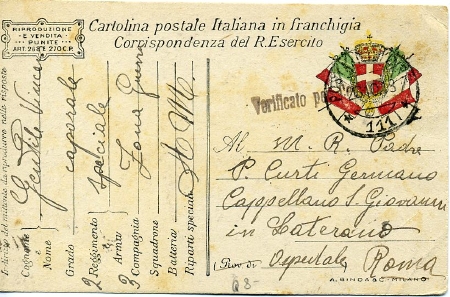 RIPRODUZIONE
E VENDITA
PUNITE
ART. 268 E 270 C.P.
Cartolina postale Italiana in franchigia
Corrispondenza del R. Esercito
Verificato
111
Indirizzo del mittente da riprodursi nella risposta
Cognome Gentile
Nome
Grado caporale
2 Reggimento speciale
Arma
3 Compagnia Zona Guerra
Squadrone
Batteria
Riparti speciali
Al M. R. Padre
P. Curti Germano
Cappellano S. Giovanni
in Laterano
(Prov. di Ospedale Roma
A. BINDA & C. - MILANO
R8-